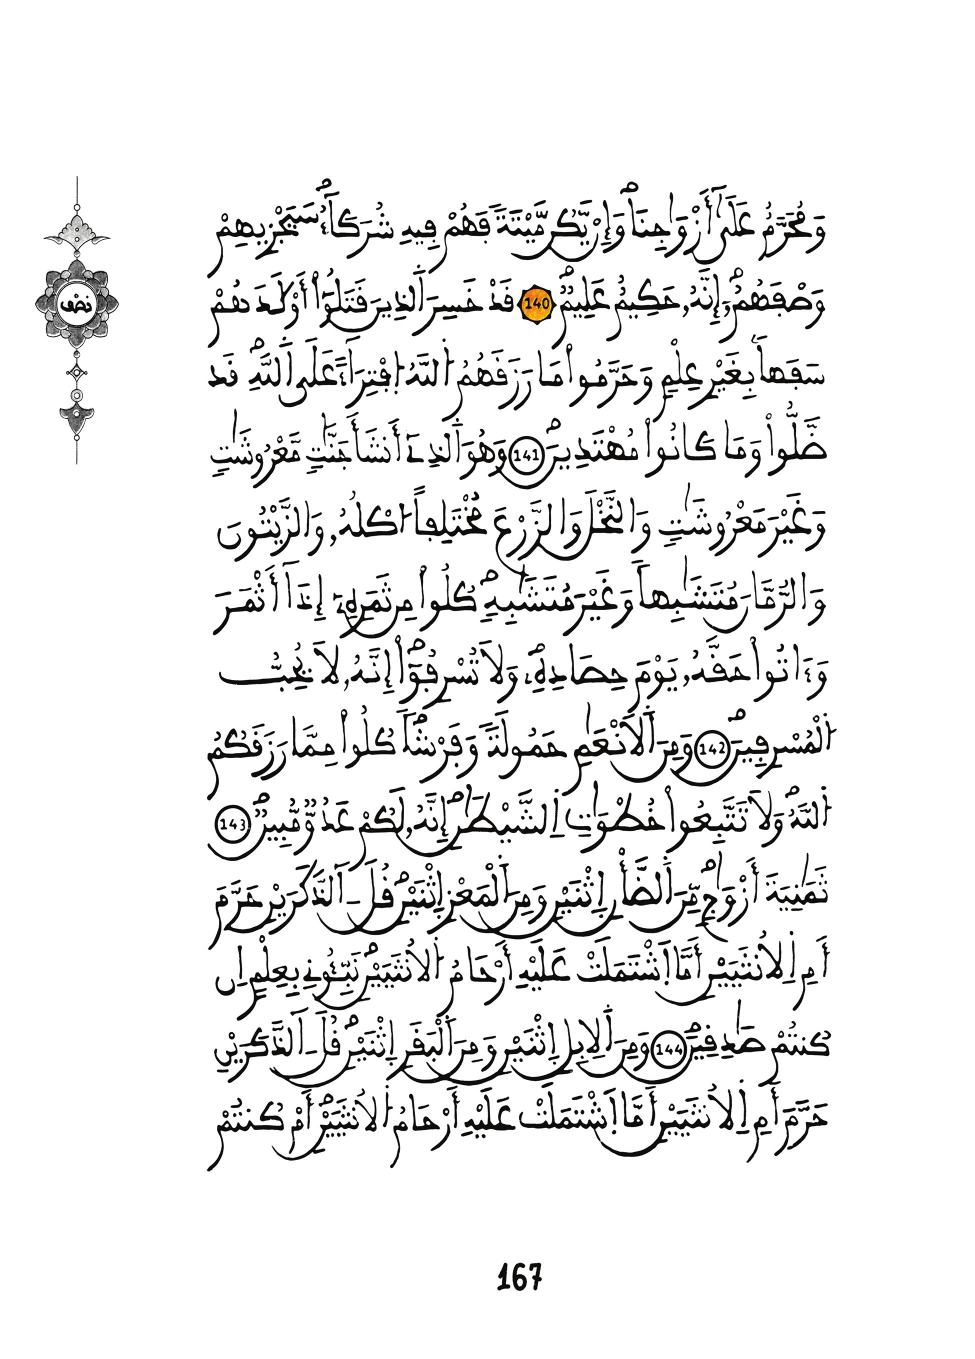 نصف
وَمُحَرَّمٌ عَلَىٰ أَزْوَٰجِنَا وَإِن يَكُن مَّيْتَةً فَهُمْ فِيهِ شُرَكَآءُ سَيَجْزِيهِمْ
وَصْفَهُمُۥٓ إِنَّهُۥ حَكِيمٌ عَلِيمٌ 140 قَدْ خَسِرَ ٱلذِينَ قَتَلُوٓاْ أَوْلَٰدَهُمْ
سَفَهاَۢ بِغَيْرِ عِلْمٍ وَحَرَّمُواْ مَا رَزَقَهُمُ ٱللَّهُ ٱفْتِرَآءً عَلَى ٱللَّهِ قَد
ضَّلُّواْ وَمَا كَانُواْ مُهْتَدِينَ 141 وَهُوَ ٱلذِےٓ أَنشَأَ جَنَّٰتٍ مَّعْرُوشَٰتٍ
وَغَيْرَ مَعْرُوشَٰتٍ وَالنَّخْلَ وَالزَّرْعَ مُخْتَلِفاً ا۟كْلُهُۥ وَالزَّيْتُونَ
وَالرُّمَّانَ مُتَشَٰبِهاً وَغَيْرَ مُتَشَٰبِهٍ كُلُواْ مِن ثَمَرِهِۦٓ إِذَآ أَثْمَرَ
وَءَاتُواْ حَقَّهُۥ يَوْمَ حِصَادِهِۦ وَلَا تُسْرِفُوٓاْ إِنَّهُۥ لَا يُحِبُّ
اُ۬لْمُسْرِفِينَ 142 وَمِنَ ٱلَانْعَٰمِ حَمُولَةً وَفَرْشاً كُلُواْ مِمَّا رَزَقَكُمُ
اُ۬للَّهُ وَلَا تَتَّبِعُواْ خُطْوَٰتِ اِ۬لشَّيْطَٰنِ إِنَّهُۥ لَكُمْ عَدُوٌّ مُّبِينٌ 143
ثَمَٰنِيَةَ أَزْوَٰجٍ مِّنَ ٱلضَّأْنِ اِثْنَيْنِ وَمِنَ ٱلْمَعْزِ اِثْنَيْنِ قُلَ ـ آلذَّكَرَيْنِ حَرَّمَ
أَمِ اِ۬لُانثَيَيْنِ أَمَّا اَ۪شْتَمَلَتْ عَلَيْهِ أَرْحَامُ اُ۬لُانثَيَيْنِ نَبِّـُٔونِے بِعِلْمٍ اِن
كُنتُمْ صَٰدِقِينَ 144 وَمِنَ ٱلِابِلِ اِثْنَيْنِ وَمِنَ ٱلْبَقَرِ اِثْنَيْنِ قُلَ ـ آلذَّكَرَيْنِ
حَرَّمَ أَمِ اِ۬لُانثَيَيْنِ أَمَّا اَ۪شْتَمَلَتْ عَلَيْهِ أَرْحَامُ اُ۬لُانثَيَيْنِ أَمْ كُنتُمْ
167